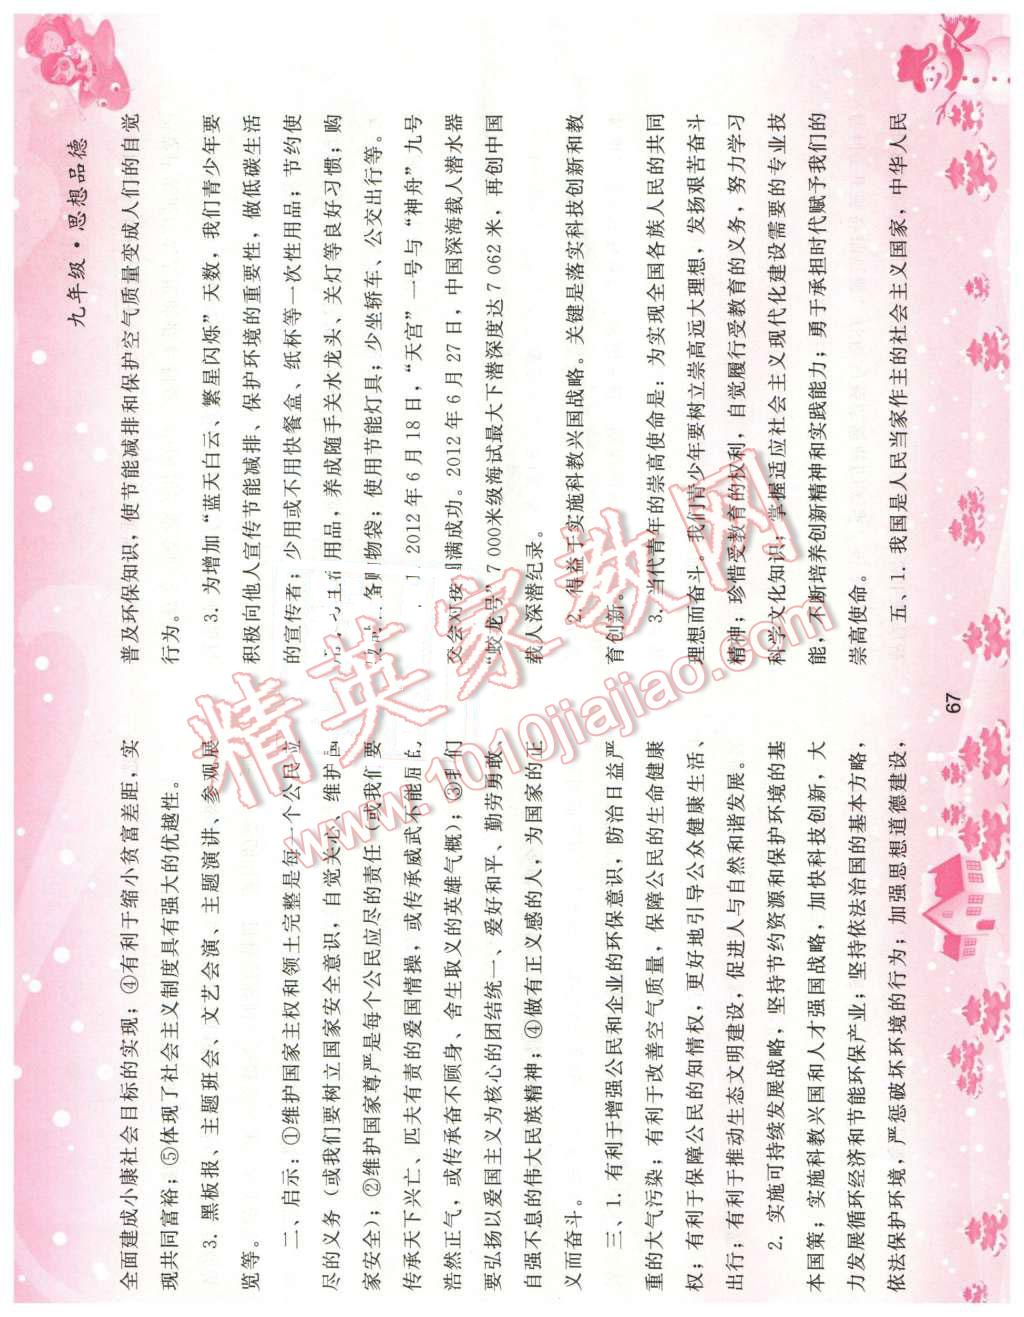 九年级·思想品德
全面建成小康社会目标的实现；④有利于缩小贫富差距，实
现共同富裕；⑤体现了社会主义制度具有强大的优越性。
3. 黑板报、主题班会、文艺会演、主题演讲、参观展
览等。
二、启示：①维护国家主权和领土完整是每一个公民应
尽的义务（或我们要树立国家安全意识，自觉关心、维护国
家安全）；②维护国家尊严是每个公民应尽的责任（或我们要
传承天下兴亡、匹夫有责的爱国情操，或传承威武不能屈的
浩然正气，或传承奋不顾身、舍生取义的英雄气概）；③我们
要弘扬以爱国主义为核心的团结统一、爱好和平、勤劳勇敢、
自强不息的伟大民族精神；④做有正义感的人，为国家的正
义而奋斗。
三、1. 有利于增强公民和企业的环保意识，防治日益严
重的大气污染；有利于改善空气质量，保障公民的生命健康
权；有利于保障公民的知情权，更好地引导公众健康生活、
出行；有利于推动生态文明建设，促进人与自然和谐发展。
2. 实施可持续发展战略，坚持节约资源和保护环境的基
本国策；实施科教兴国和人才强国战略，加快科技创新，大
力发展循环经济和节能环保产业；坚持依法治国的基本方略，
依法保护环境，严惩破坏环境的行为；加强思想道德建设，
普及环保知识，使节能减排和保护空气质量变成人们的自觉
行为。
3. 为增加“蓝天白云、繁星闪烁”天数，我们青少年要
积极向他人宣传节能减排、保护环境的重要性，做低碳生活
的宣传者；少用或不用快餐盒、纸杯等一次性用品；节约使
用品，养成随手关水龙头、关灯等良好习惯；购
物袋；使用节能灯具；少坐轿车、公交出行等。
2012 年 6 月 18 日，“天宫”一号与“神舟”九号
交会对接圆满成功。2012 年 6 月 27 日，中国深海载人潜水器
“蛟龙号”7 000米级海试最大下潜深度达 7 062 米，再创中国
载人深潜纪录。
2. 得益于实施科教兴国战略。关键是落实科技创新和教
育创新。
3. 当代青年的崇高使命是：为实现全国各族人民的共同
理想而奋斗。我们青少年要树立崇高远大理想，发扬艰苦奋斗
精神；珍惜受教育的权利，自觉履行受教育的义务，努力学习
科学文化知识；掌握适应社会主义现代化建设需要的专业技
能，不断培养创新精神和实践能力；勇于承担时代赋予我们的
崇高使命。
五、1. 我国是人民当家作主的社会主义国家，中华人民
67
精英家教网
www.1010jiajiao.com